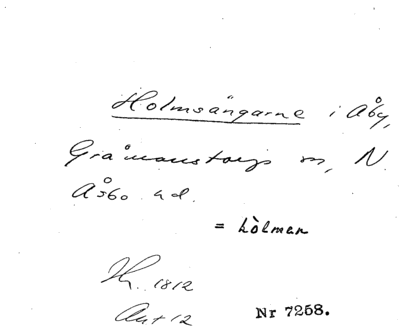 Holmsängarne i Åby,
Gråmanstorps sn, N.
Åsbo hd.
= hòlmar
1812
Akt 12 Nr 7258.